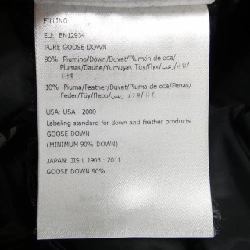 FILLING
E.U. EN12934
PURE GOOSE DOWN
90% Piumino/Down/Duvet/Plumón de oca/
Plumas/Daune/Yumuşak Tüy/Пух/
10% Piuma/Feather/Duvet/Pluma de oca/Penas/
Feder/Tüy/Перо/
USA: USA 2000
Labeling standard for down and feather products
GOOSE DOWN
(MINIMUM 90% DOWN)
JAPAN: JIS L 1903 : 2011
GOOSE DOWN 90%